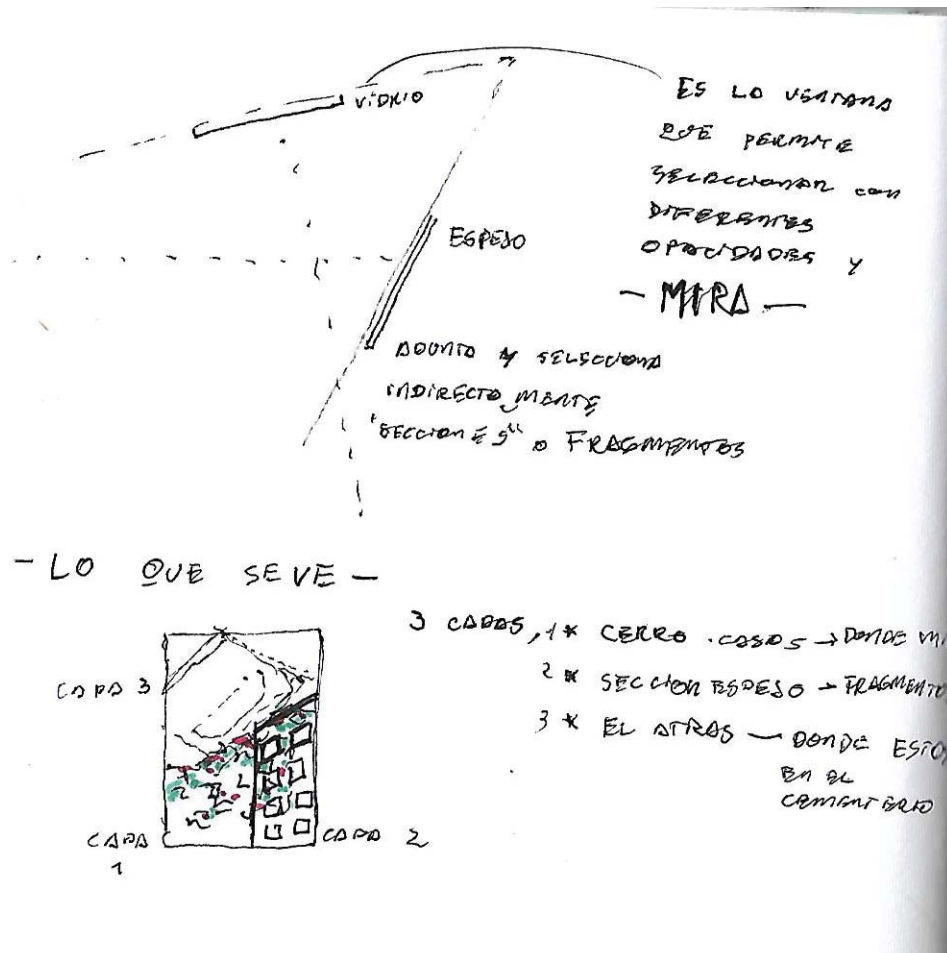 VIDRIO
ES LO VENTANA
QUE PERMITE
SELECCIONAR CON
DIFERENTES
OPACIDADES Y
- MIRA -
ESPEJO
APUNTA Y SELECCIONA
INDIRECTAMENTE
"SECCIONES" O FRAGMENTOS
- LO QUE SE VE -
3 CAPAS, 1* CERRO . CASAS → DONDE MI
2* SECCION ESPEJO → FRAGMENTO
3* EL ATRAS — DONDE ESTO
EN EL
CEMENTERIO
CAPA 3
CAPA
1
CAPA 2